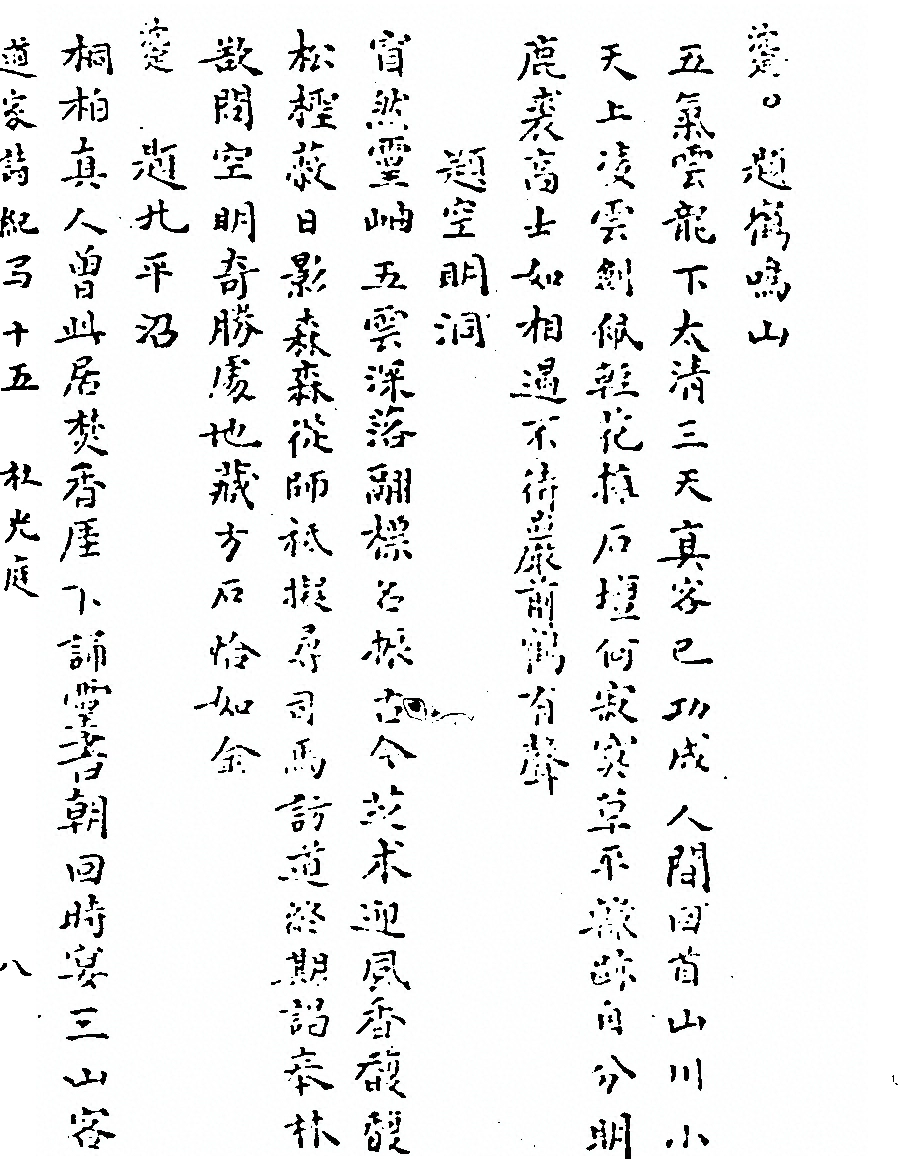 題鶴鳴山
五氣雲龍下太清三天真客已功成人間回首山川小
天上凌雲劍佩輕花擁石壇何寂寞草平轍跡自分明
鹿裘高士如相遇不待巖前鶴有聲
題空明洞
窅然靈岫五雲深落翮標名振古今芝朮迎風香馥馥
松檉蔽日影森森從師祗擬尋司馬訪道終期謁奉林
欲問空明奇勝處地藏方石恰如金
題北平沼
桐柏真人曾此居焚香厓下誦靈書朝回時宴三山客
道家詩紀 十五 杜光庭 八